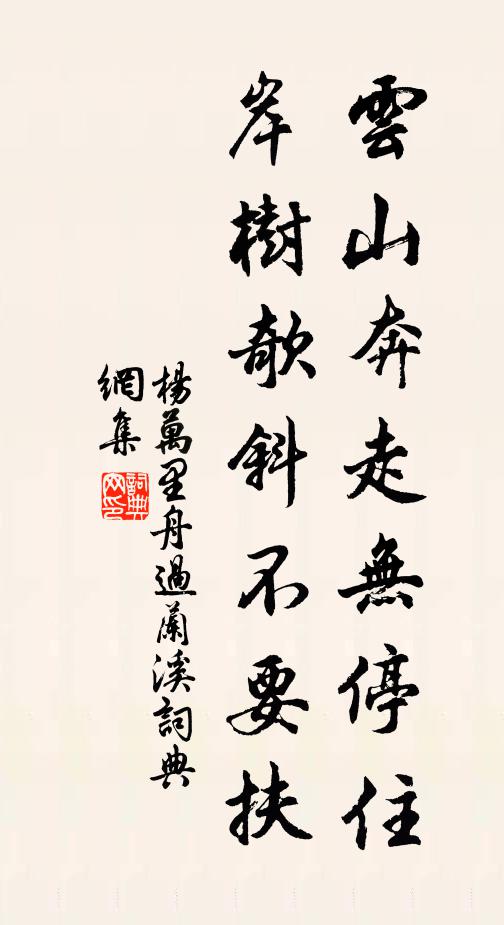 雲山奔走無停住
岸樹欹斜不要扶
楊萬里舟過蘭溪詞典
網集
詞典
网印